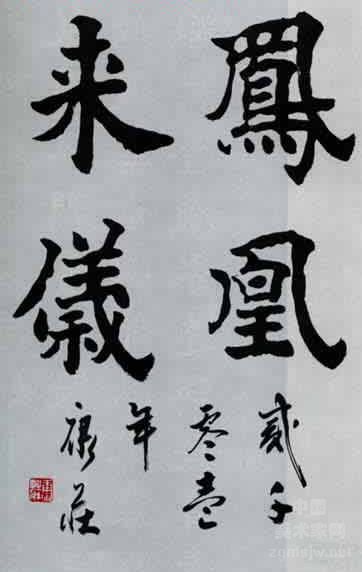 鳳凰
来儀
貳千
零壹
年
莊
中国
美术家网
zgmsjw.com